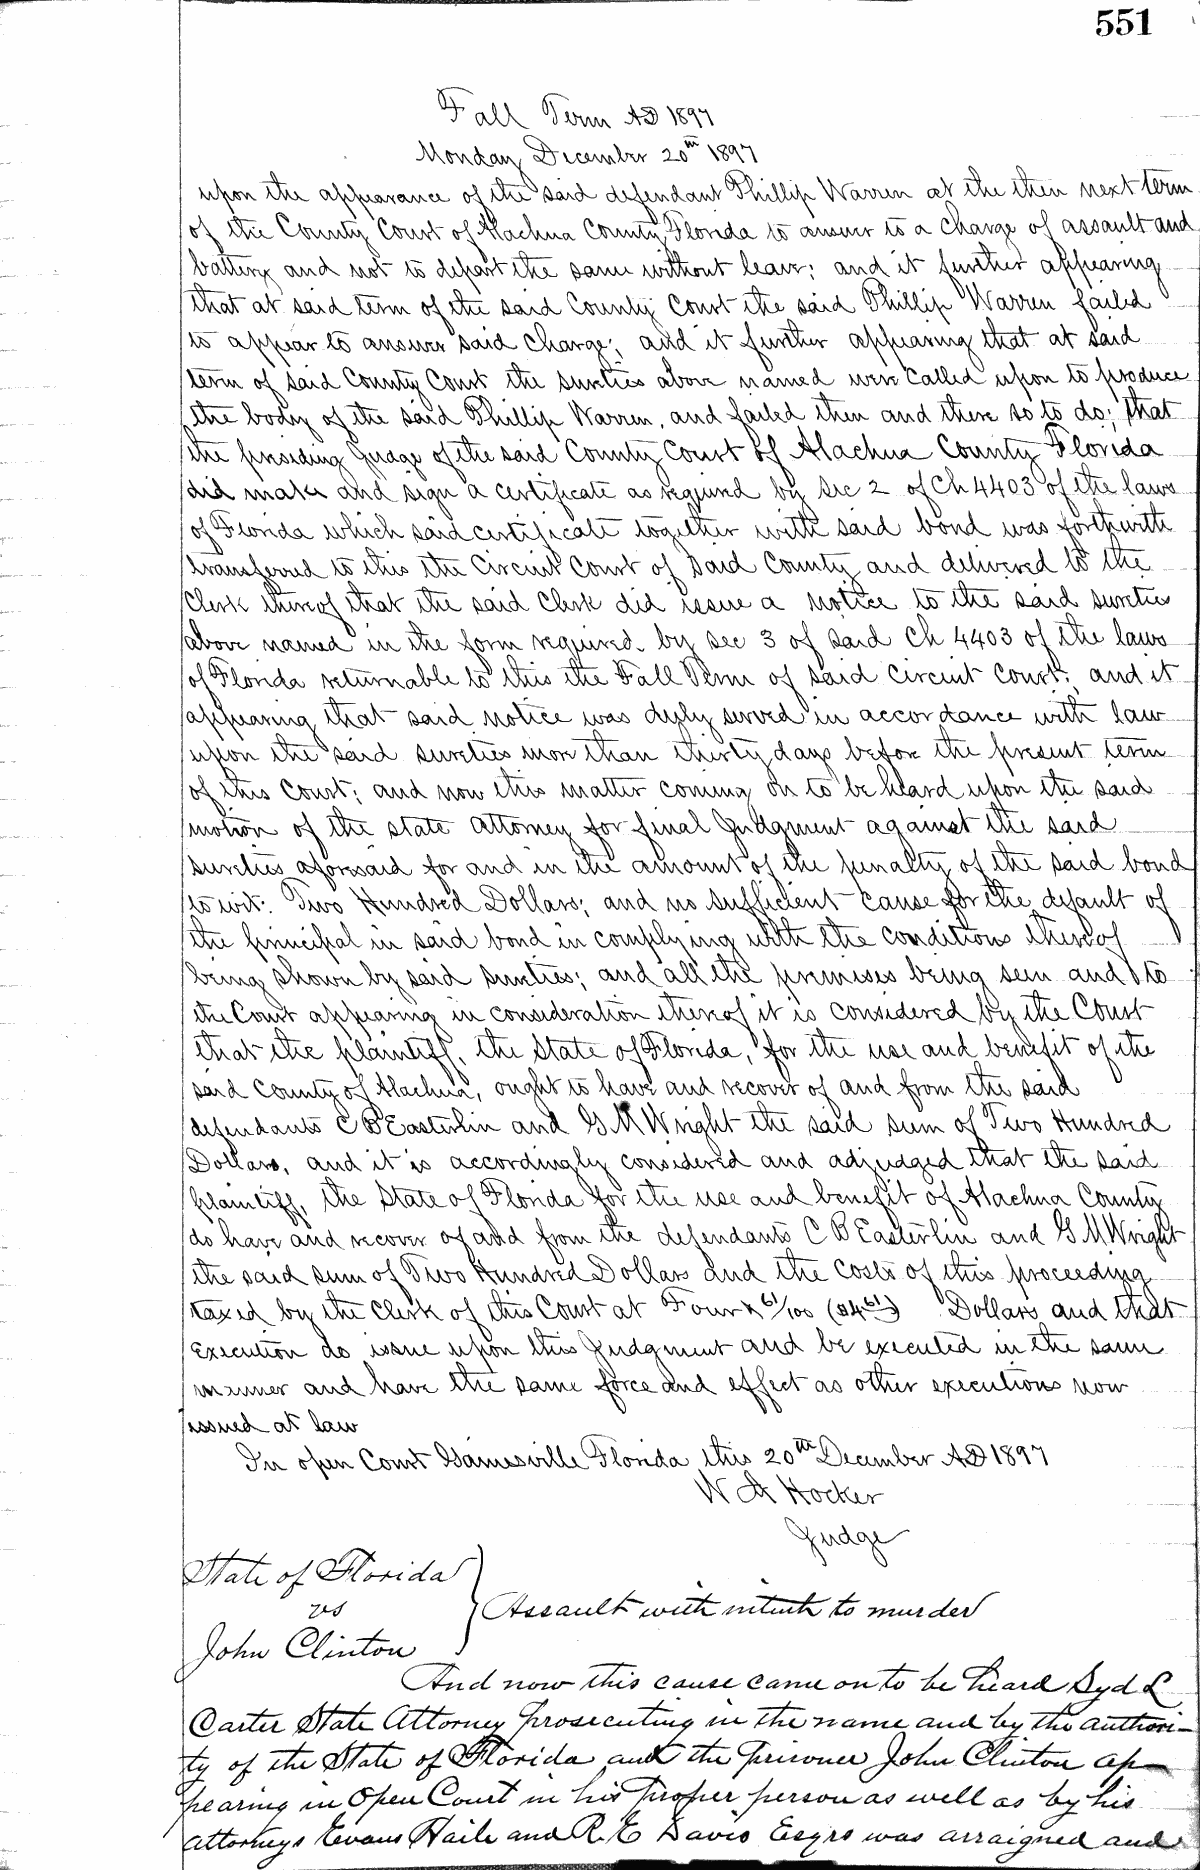 551
Fall Term AD 1897
Monday December 20th 1897
upon the appearance of the said defendant Phillip Warren at the then next term
of the County Court of Alachua County Florida to answer to a charge of assault and
battery and not to depart the same without leave; and it further appearing
that at said term of the said County Court the said Phillip Warren failed
to appear to answer said charge; and it further appearing that at said
term of said County Court the sureties above named were called upon to produce
the body of the said Phillip Warren, and failed then and there so to do; that
the presiding Judge of the said County Court of Alachua County Florida
did make and sign a certificate as required by sec 2 of Ch 4403 of the laws
of Florida which said certificate together with said bond was forthwith
transferred to this the Circuit Court of said County and delivered to the
Clerk thereof that the said Clerk did issue a notice to the said sureties
above named in the form required by sec 3 of said Ch 4403 of the laws
of Florida returnable to this the Fall Term of said Circuit Court; and it
appearing that said notice was duly served in accordance with law
upon the said sureties more than thirty days before the present term
of this Court; and now this matter coming on to be heard upon the said
motion of the state attorney for final Judgment against the said
sureties aforesaid for and in the amount of the penalty of the said bond
to wit: Two Hundred Dollars; and no sufficient cause for the default of
the principal in said bond in complying with the conditions thereof
being shown by said sureties; and all the premises being seen and to
the Court appearing in consideration thereof it is considered by the Court
that the plaintiff, the State of Florida, for the use and benefit of the
said County of Alachua, ought to have and recover of and from the said
defendants C B Easterlin and G M Wright the said sum of Two Hundred
Dollars, and it is accordingly considered and adjudged that the said
plaintiff, the State of Florida for the use and benefit of Alachua County
do have and recover of and from the defendants C B Easterlin and G M Wright
the said sum of Two Hundred Dollars and the costs of this proceeding
taxed by the Clerk of this Court at Four & 61/100 ($4 61) Dollars and that
execution do issue upon this Judgment and be executed in the same
manner and have the same force and effect as other executions now
issued at law
In open Court Gainesville Florida this 20th December AD 1897
W A Hocker
Judge
State of Florida
vs } Assault with intent to murder
John Clinton
And now this cause came on to be heard Syd L
Carter State Attorney prosecuting in the name and by the authori-
ty of the State of Florida and the prisoner John Clinton ap-
pearing in Open Court in his proper person as well as by his
attorneys Evans Haile and R. E Davis Esqrs was arraigned and